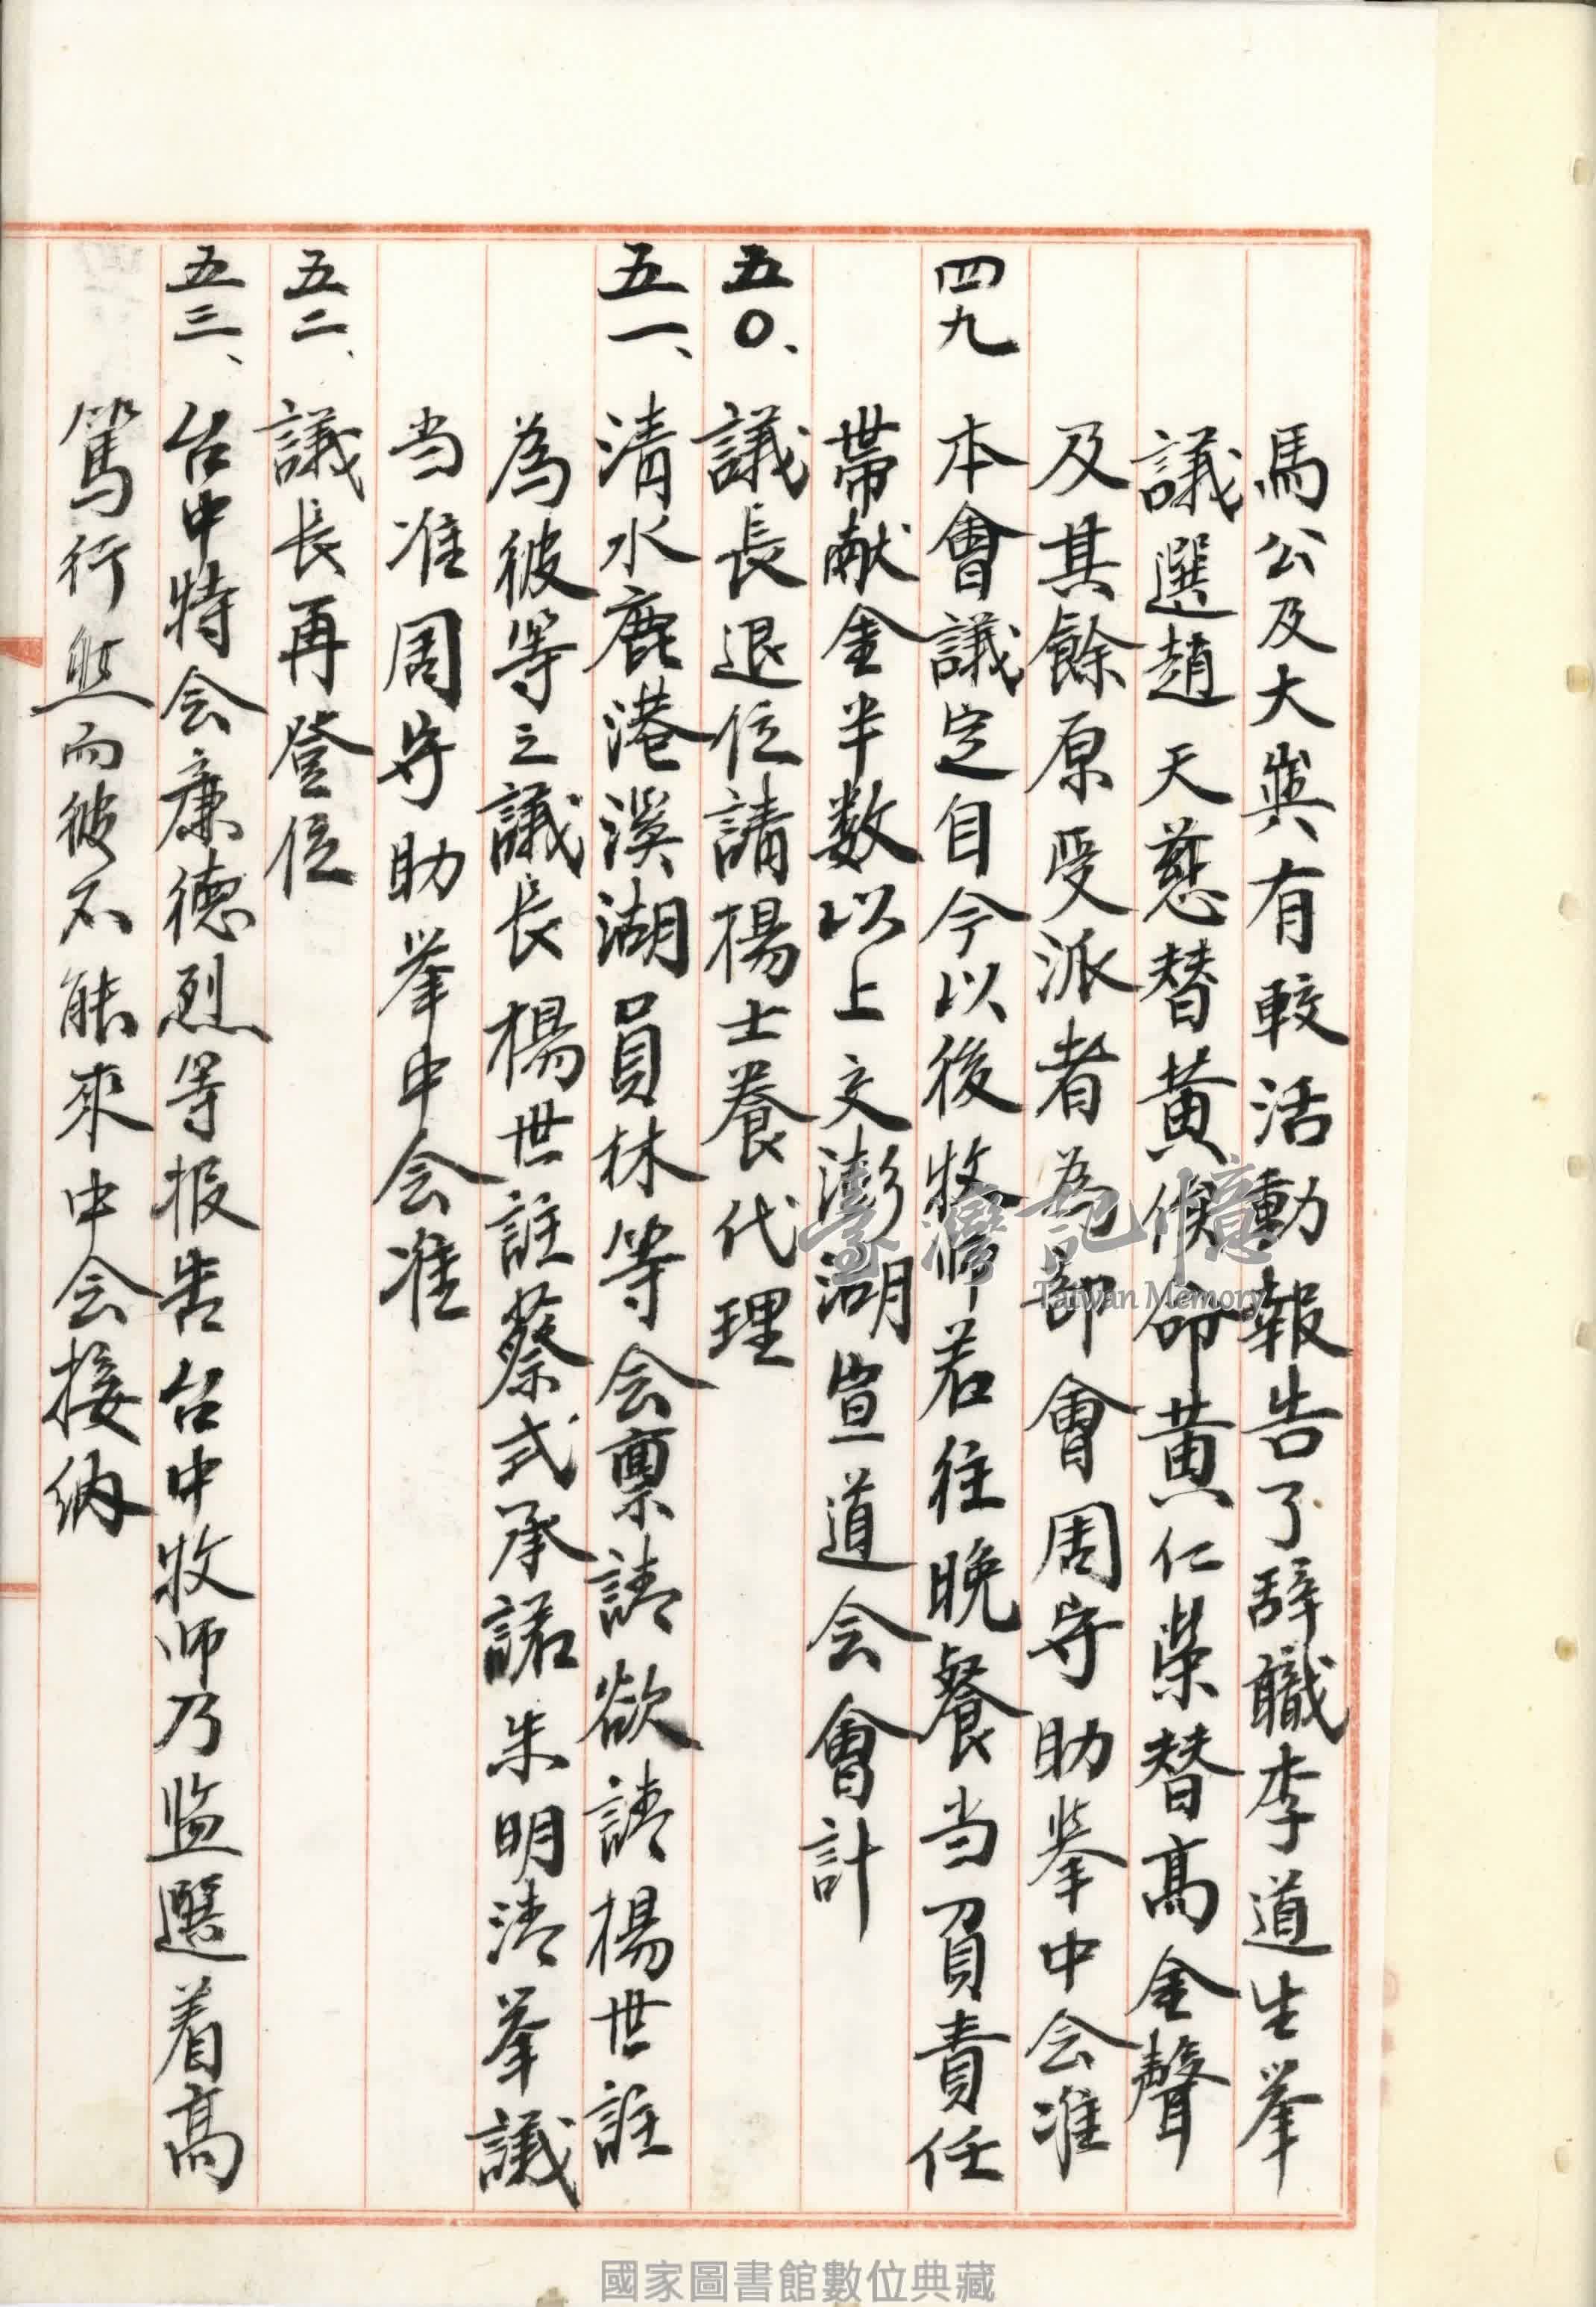 馬公及大嶼有較活動報告了辞職李道生挙
議選趙天慈替黄候命黄仁榮替高金聲
及其餘原受派者為部會周守助挙中会准
四九 本會議定自今以後牧師若往晩餐当負責任
帯献金半数以上交澎湖宣道会會計
五〇、議長退位請楊士養代理
五一、清水鹿港溪湖員林等会禀請欲請楊世註
為彼等之議長楊世註蔡式承諾朱明清挙議
当准周守助挙中会准
五二、議長再登位
五三、台中特会廉德烈等报告台中牧师乃监選着高
篤行然而彼不能來中会接納
臺灣記憶
Taiwan Memory
國家圖書館數位典藏